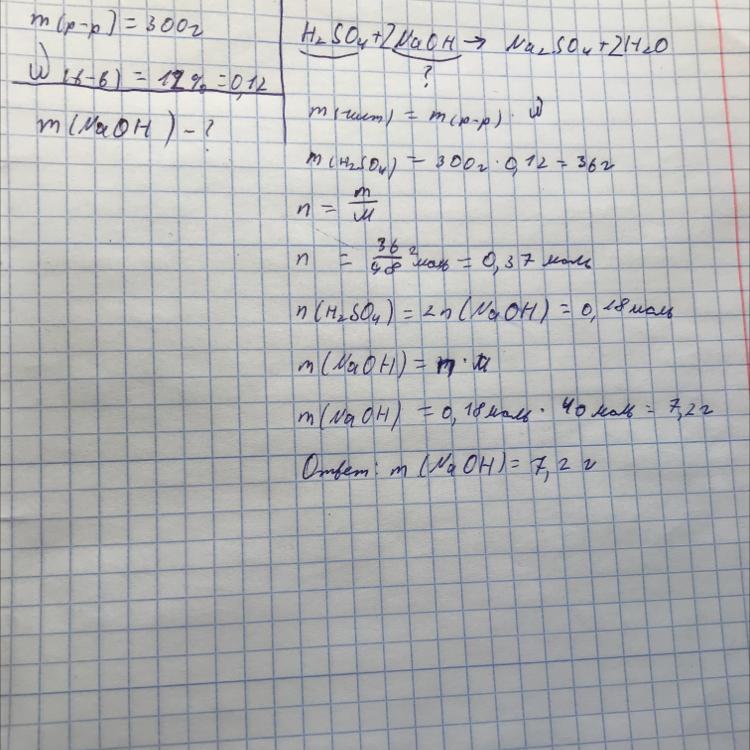 m(р-р) = 300г
ω(в-в) = 12% = 0,12
m(NaOH) - ?
H₂SO₄ + 2NaOH → Na₂SO₄ + 2H₂O
?
m(чист) = m(р-р) · ω
m(H₂SO₄) = 300г · 0,12 = 36г
n = m/M
n = 36/98 моль = 0,37 моль
n(H₂SO₄) = 2n(NaOH) = 0,18моль
m(NaOH) = n · M
m(NaOH) = 0,18моль · 40 моль = 7,2г
Ответ: m(NaOH) = 7,2 г